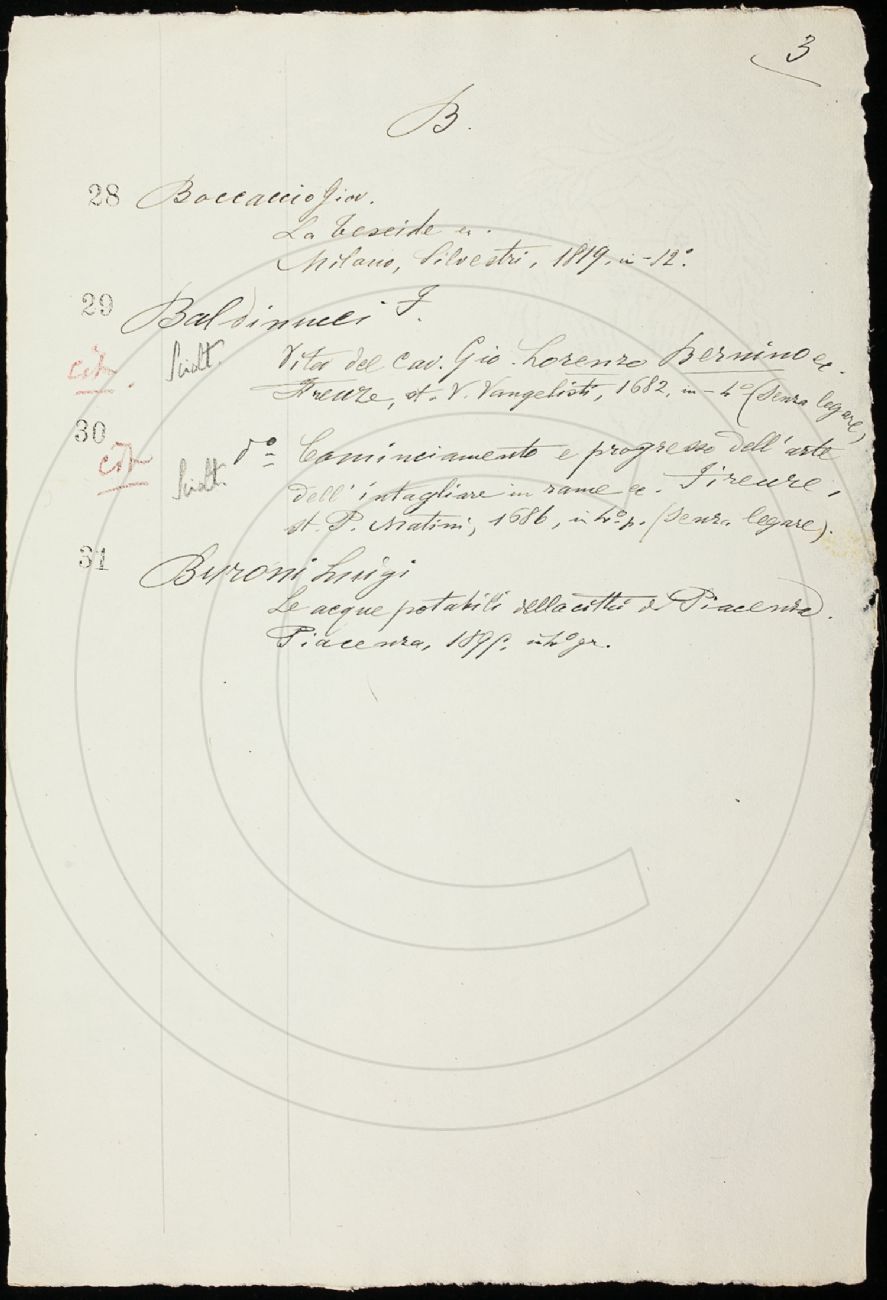 3
B.
28 Boccaccio Giov.
La Teseide ec.
Milano, Silvestri, 1819, in-12º.
29 Baldinucci F.
Vita del Cav. Gio. Lorenzo Bernino ec.
Firenze, st. V. Vangelisti, 1682, in-4º (senza legare)
30
dº Cominciamento e progresso dell'arte
dell'intagliare in rame ec. Firenze,
st. P. Matini, 1686, in 4º p. (senza legare).
31 Buroni Luigi
Le acque potabili della città di Piacenza.
Piacenza, in 4º gr.